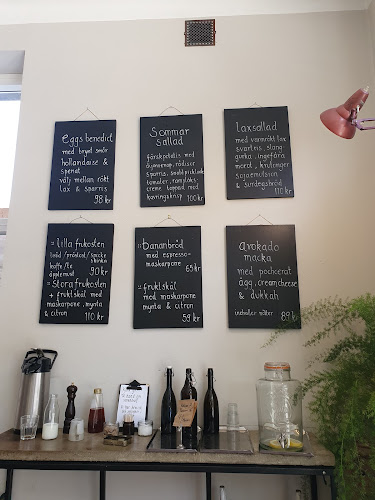 Eggs benedict
med brynt smör
hollandaise &
spenat
välj mellan rökt
lax & sparris
98 kr
Sommar
sallad
färskpotatis med
tomater, ramslöks-
creme toppad med
kavringskrisp 100 kr
Laxsallad
med varmrökt lax
svartris, slang-
gurka, ingefära
morot, krutonger
sojaemulsion
& surdegsbröd
110 kr
Lilla frukosten
bröd/prästost/
skinka
kaffe/te
äpplemust 90 kr
Stora frukosten
+ fruktskål med
maskarpone, mynta
& citron 110 kr
bananbröd
med espresso-
maskarpone
65 kr
fruktskål
med maskarpone
mynta & citron
59 kr
avokado
macka
med pocherat
ägg, creamcheese
& dukkah
innehåller nötter 89 kr